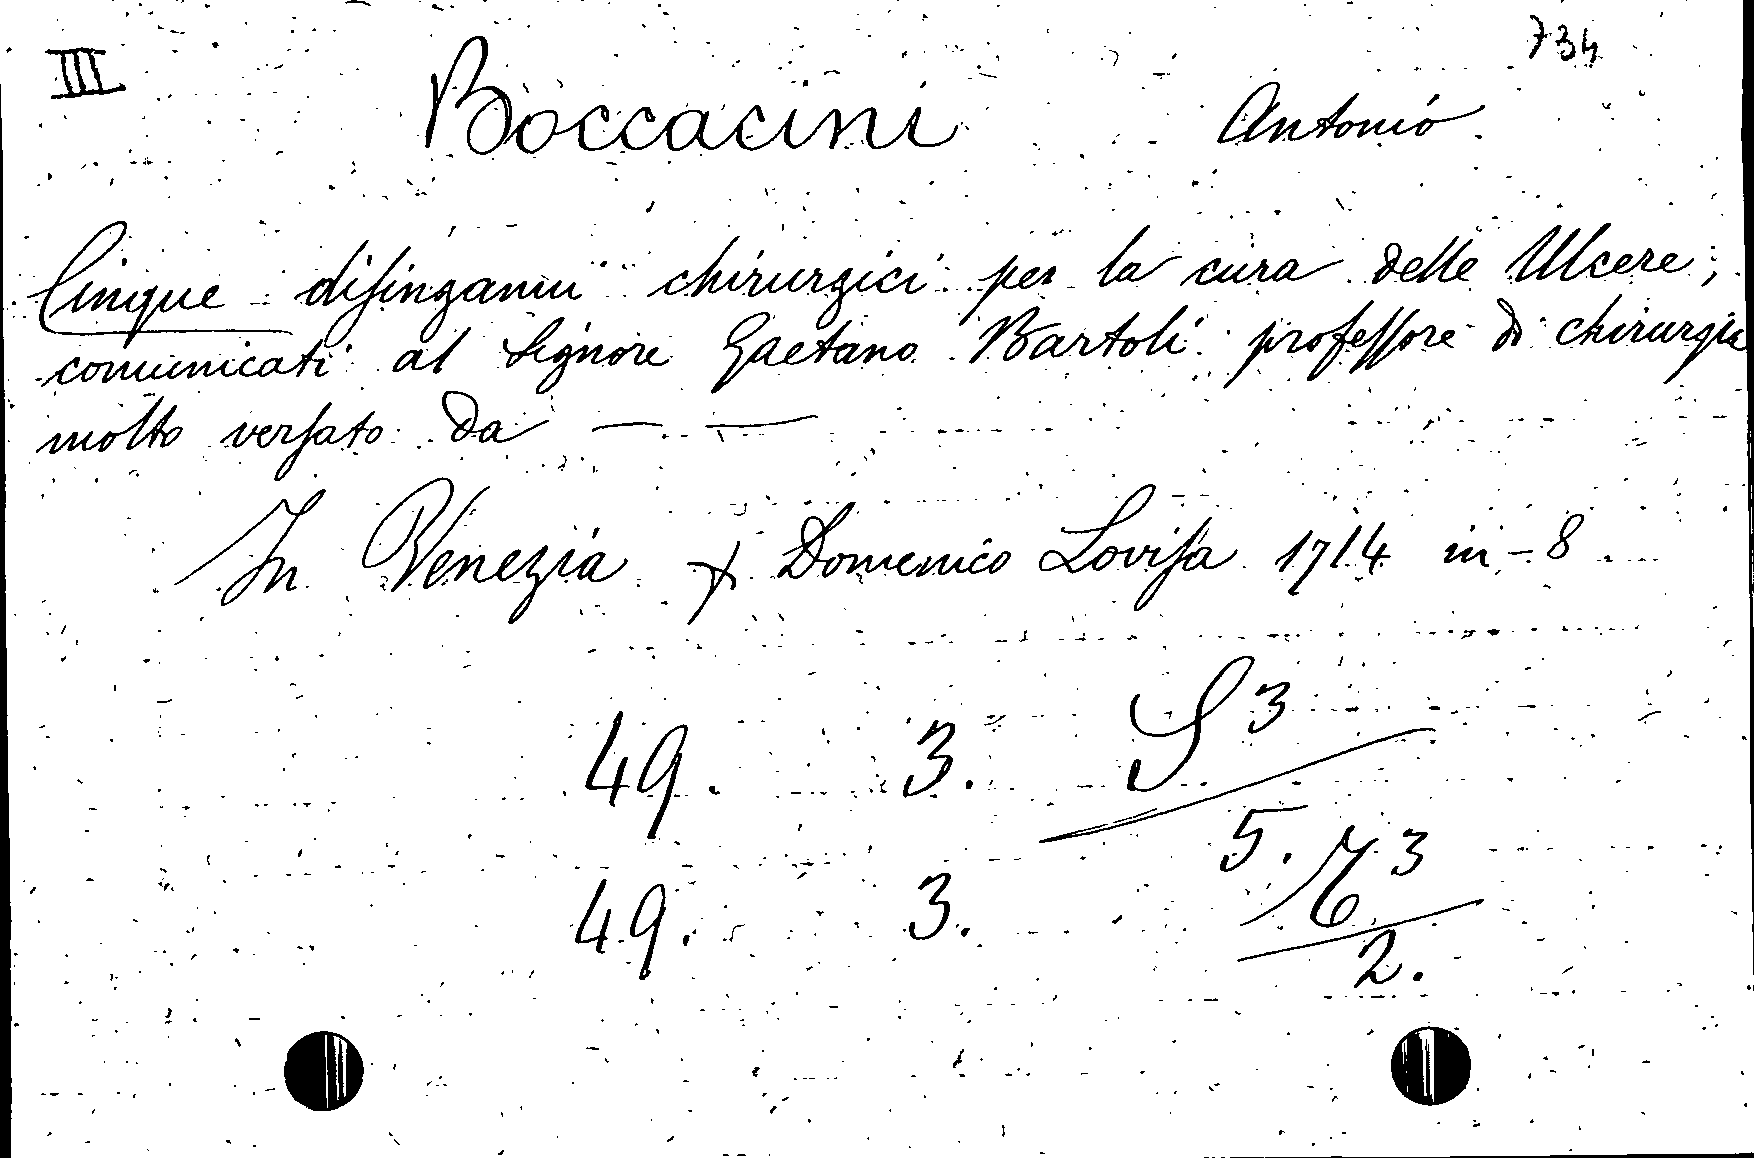 III 734
Boccacini Antonio
Cinque disinganni chirurgici per la cura delle Ulcere;
comunicati al Signore Gaetano Bartoli professore di chirurgia
molto versato da — —
In Venezia Domenico Lovisa 1714 in-8
49. 3. S 3
5.
49. 3. 3
2.